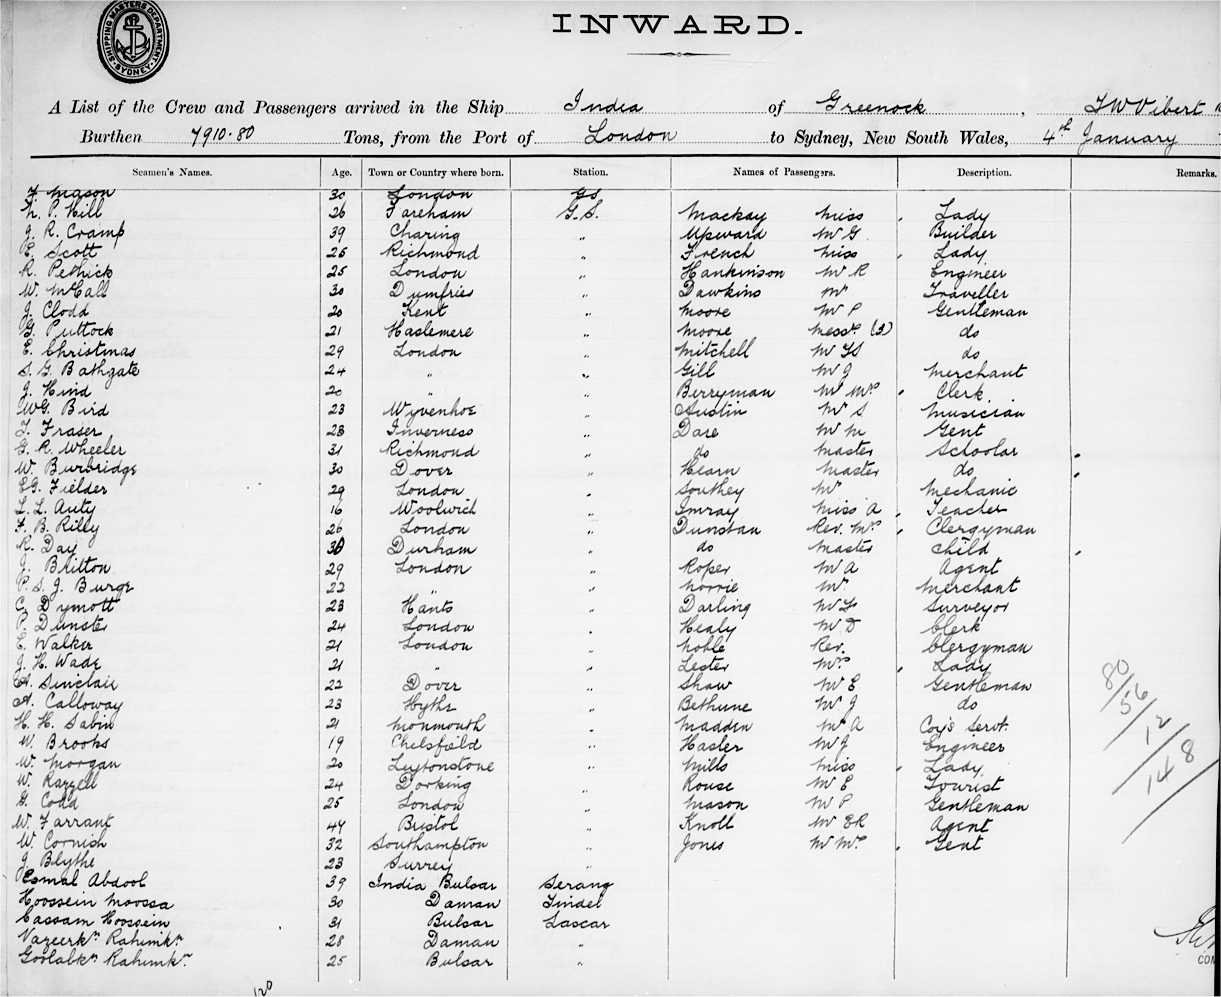 SHIPPING MASTERS DEPARTMENT. SYDNEY.
INWARD.
A List of the Crew and Passengers arrived in the Ship India of Greenock, T W Vibert
Burthen 7910.80 Tons, from the Port of London to Sydney, New South Wales, 4th January
Seamen's Names. Age. Town or Country where born. Station. Names of Passengers. Description. Remarks.
F. Mason 30 London GS
P. Hill 26 Fareham G.S. Mackay Miss Lady
J. R. Cramp 39 Charing " Upward Mr G. Builder
E. Scott 25 Richmond " French Miss Lady
R. Pethick 25 London " Hankinson Mr R Engineer
W. McCall 30 Dumfries " Dawkins Mr Traveller
J. Clodd 20 Kent " Moore Mr P Gentleman
G. Puttock 21 Haslemere " Moore Messrs (2) do
E. Christmas 29 London " Mitchell Mr do
S. G. Bathgate 24 " " Gill Mr J Merchant
J. Hind 20 " " Berryman Mr Mrs Clerk
WG. Bird 23 Wyvenhoe " Austin Mr S Musician
T. Fraser 23 Inverness " Dare Mr M Gent
G. R. Wheeler 31 Richmond " do Master Schoolar
W. Burbridge 30 Dover " Hearn Master do
Fielder 29 London " Southey Mr Mechanic
L. L. Auty 16 Woolwich " Imray Miss A Teacher
F. B. Rilly 26 London " Dunstan Rev. Mrs Clergyman
R. Day Durham " do Master Child
J. Britton 29 London " Roper Mr A Agent
P. S. J. Burge 22 " " Norrie Mr Merchant
C. Dymott 23 Hants " Darling Mr Surveyor
P. Dunster 24 London " Healy Mr D Clerk
E. Walker 21 London " Noble Rev. Clergyman
J. H. Wade 21 " " Lester Mrs Lady
A. Sinclair 22 Dover " Shaw Mr E Gentleman
A. Calloway 23 Hythe " Bethune Mr J do
H. H. Sabin 21 Monmouth " Madden Mr A Coy's Servt.
W. Brooks 19 Chelsfield " Hasler Mr J Engineer
W. Morgan 20 Leytonstone " Mills Miss Lady
W. Razzell 24 Dorking Rouse Mr E Tourist
G. Codd 25 London " Mason Mr P Gentleman
W. Farrant 44 Bristol " Knoll Mr ER Agent
W. Cornish 32 Southampton " Jones Mr Mrs Gent
J. Blythe 23 Surrey "
Esmal Abdool 39 India Bulsar Serang
Hoossein Moossa 30 Daman Tindel
Cassam Hoossein 31 Bulsar Lascar
Vazeerkn Rahimkn 28 Daman "
Goolabkn Rahimkn 25 Bulsar "
80
56
12
148
120
COM